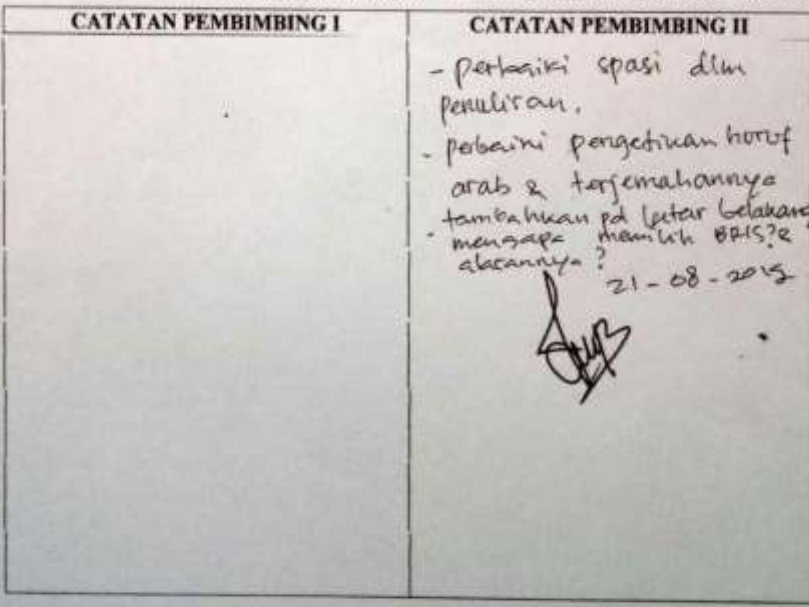 CATATAN PEMBIMBING I
CATATAN PEMBIMBING II
- perbaiki spasi dlm
penulisan.
- perbaiki pengetikan huruf
arab & terjemahannya
- tambahkan pd latar belakang
mengapa memilih BRIS? &
alasannya?
21 - 08 -